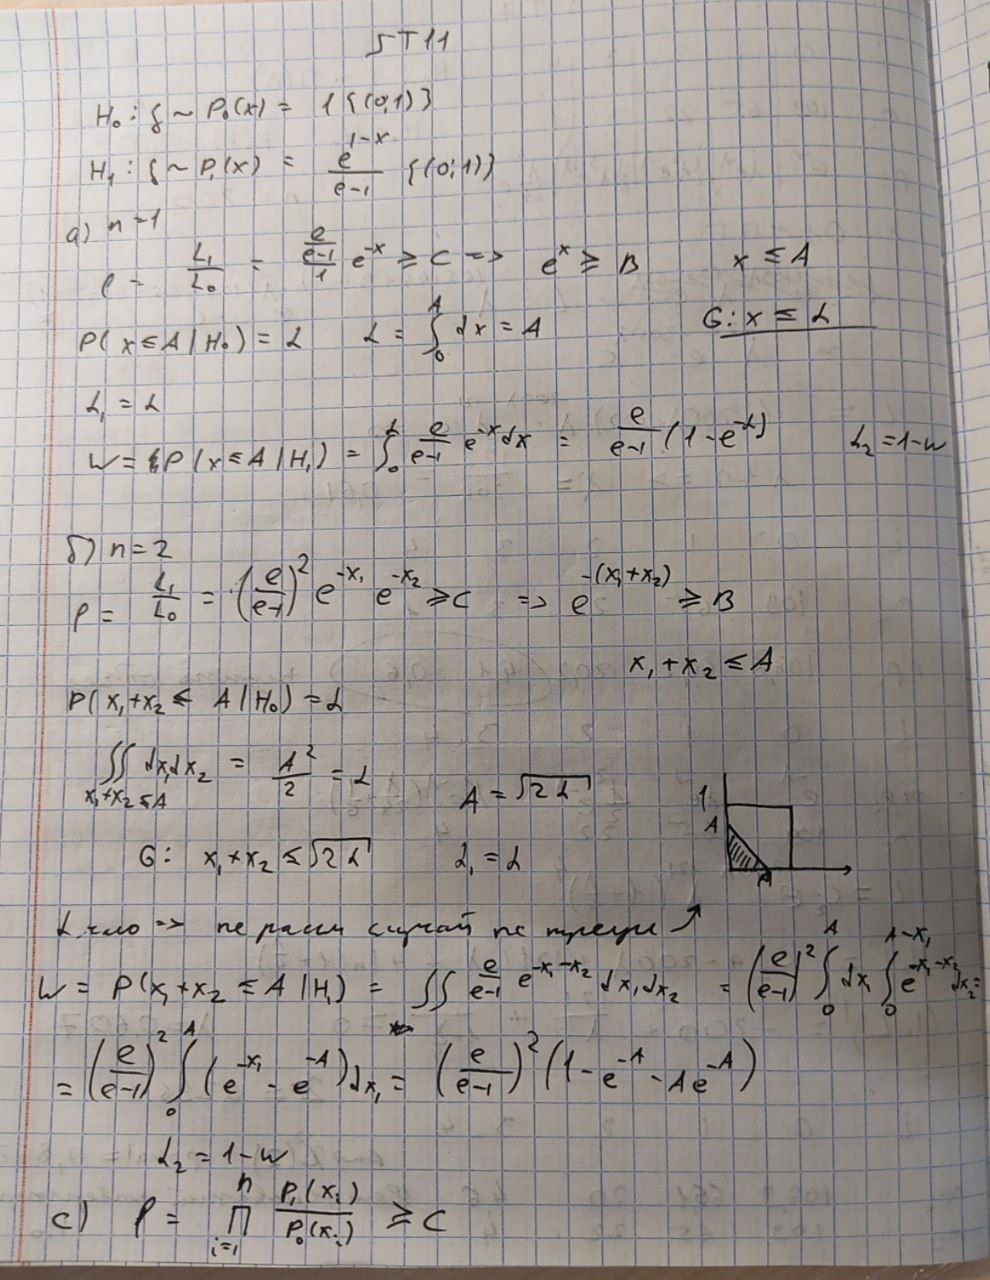 ST11
H₀: ξ ~ P₀(x) = 1{(0,1)}
H₁: ξ ~ P₁(x) = e^{1-x}/(e-1) {(0;1)}
a) n=1
ρ = L₁/L₀ = (e/(e-1))/1 e^{-x} ≥ C => e^x ≥ B x ≤ A
P(x ≤ A | H₀) = α α = ∫₀^A dx = A G: x ≤ α
α₁ = α
W = P(x ≤ A | H₁) = ∫₀^α e/(e-1) e^{-x} dx = e/(e-1) (1-e^{-α}) α₂ = 1-w
б) n=2
ρ = L₁/L₀ = (e/(e-1))² e^{-x₁} e^{-x₂} ≥ C => e^{-(x₁+x₂)} ≥ B
x₁+x₂ ≤ A
P(x₁+x₂ ≤ A | H₀) = α
∬_{x₁+x₂≤A} dx₁dx₂ = A²/2 = α A = √(2α)
1
A
A
G: x₁+x₂ ≤ √(2α) α₁ = α
α => не расм случай не
W = P(x₁+x₂ ≤ A | H₁) = ∬ e/(e-1) e^{-x₁-x₂} dx₁dx₂ = (e/(e-1))² ∫₀^A dx₁ ∫₀^{A-x₁} e^{-x₁-x₂} dx₂ =
= (e/(e-1))² ∫₀^A (e^{-x₁} - e^{-A}) dx₁ = (e/(e-1))² (1-e^{-A} - Ae^{-A})
α₂ = 1-w
c) ρ = ∏_{i=1}^n P₁(xᵢ)/P₀(xᵢ) ≥ C